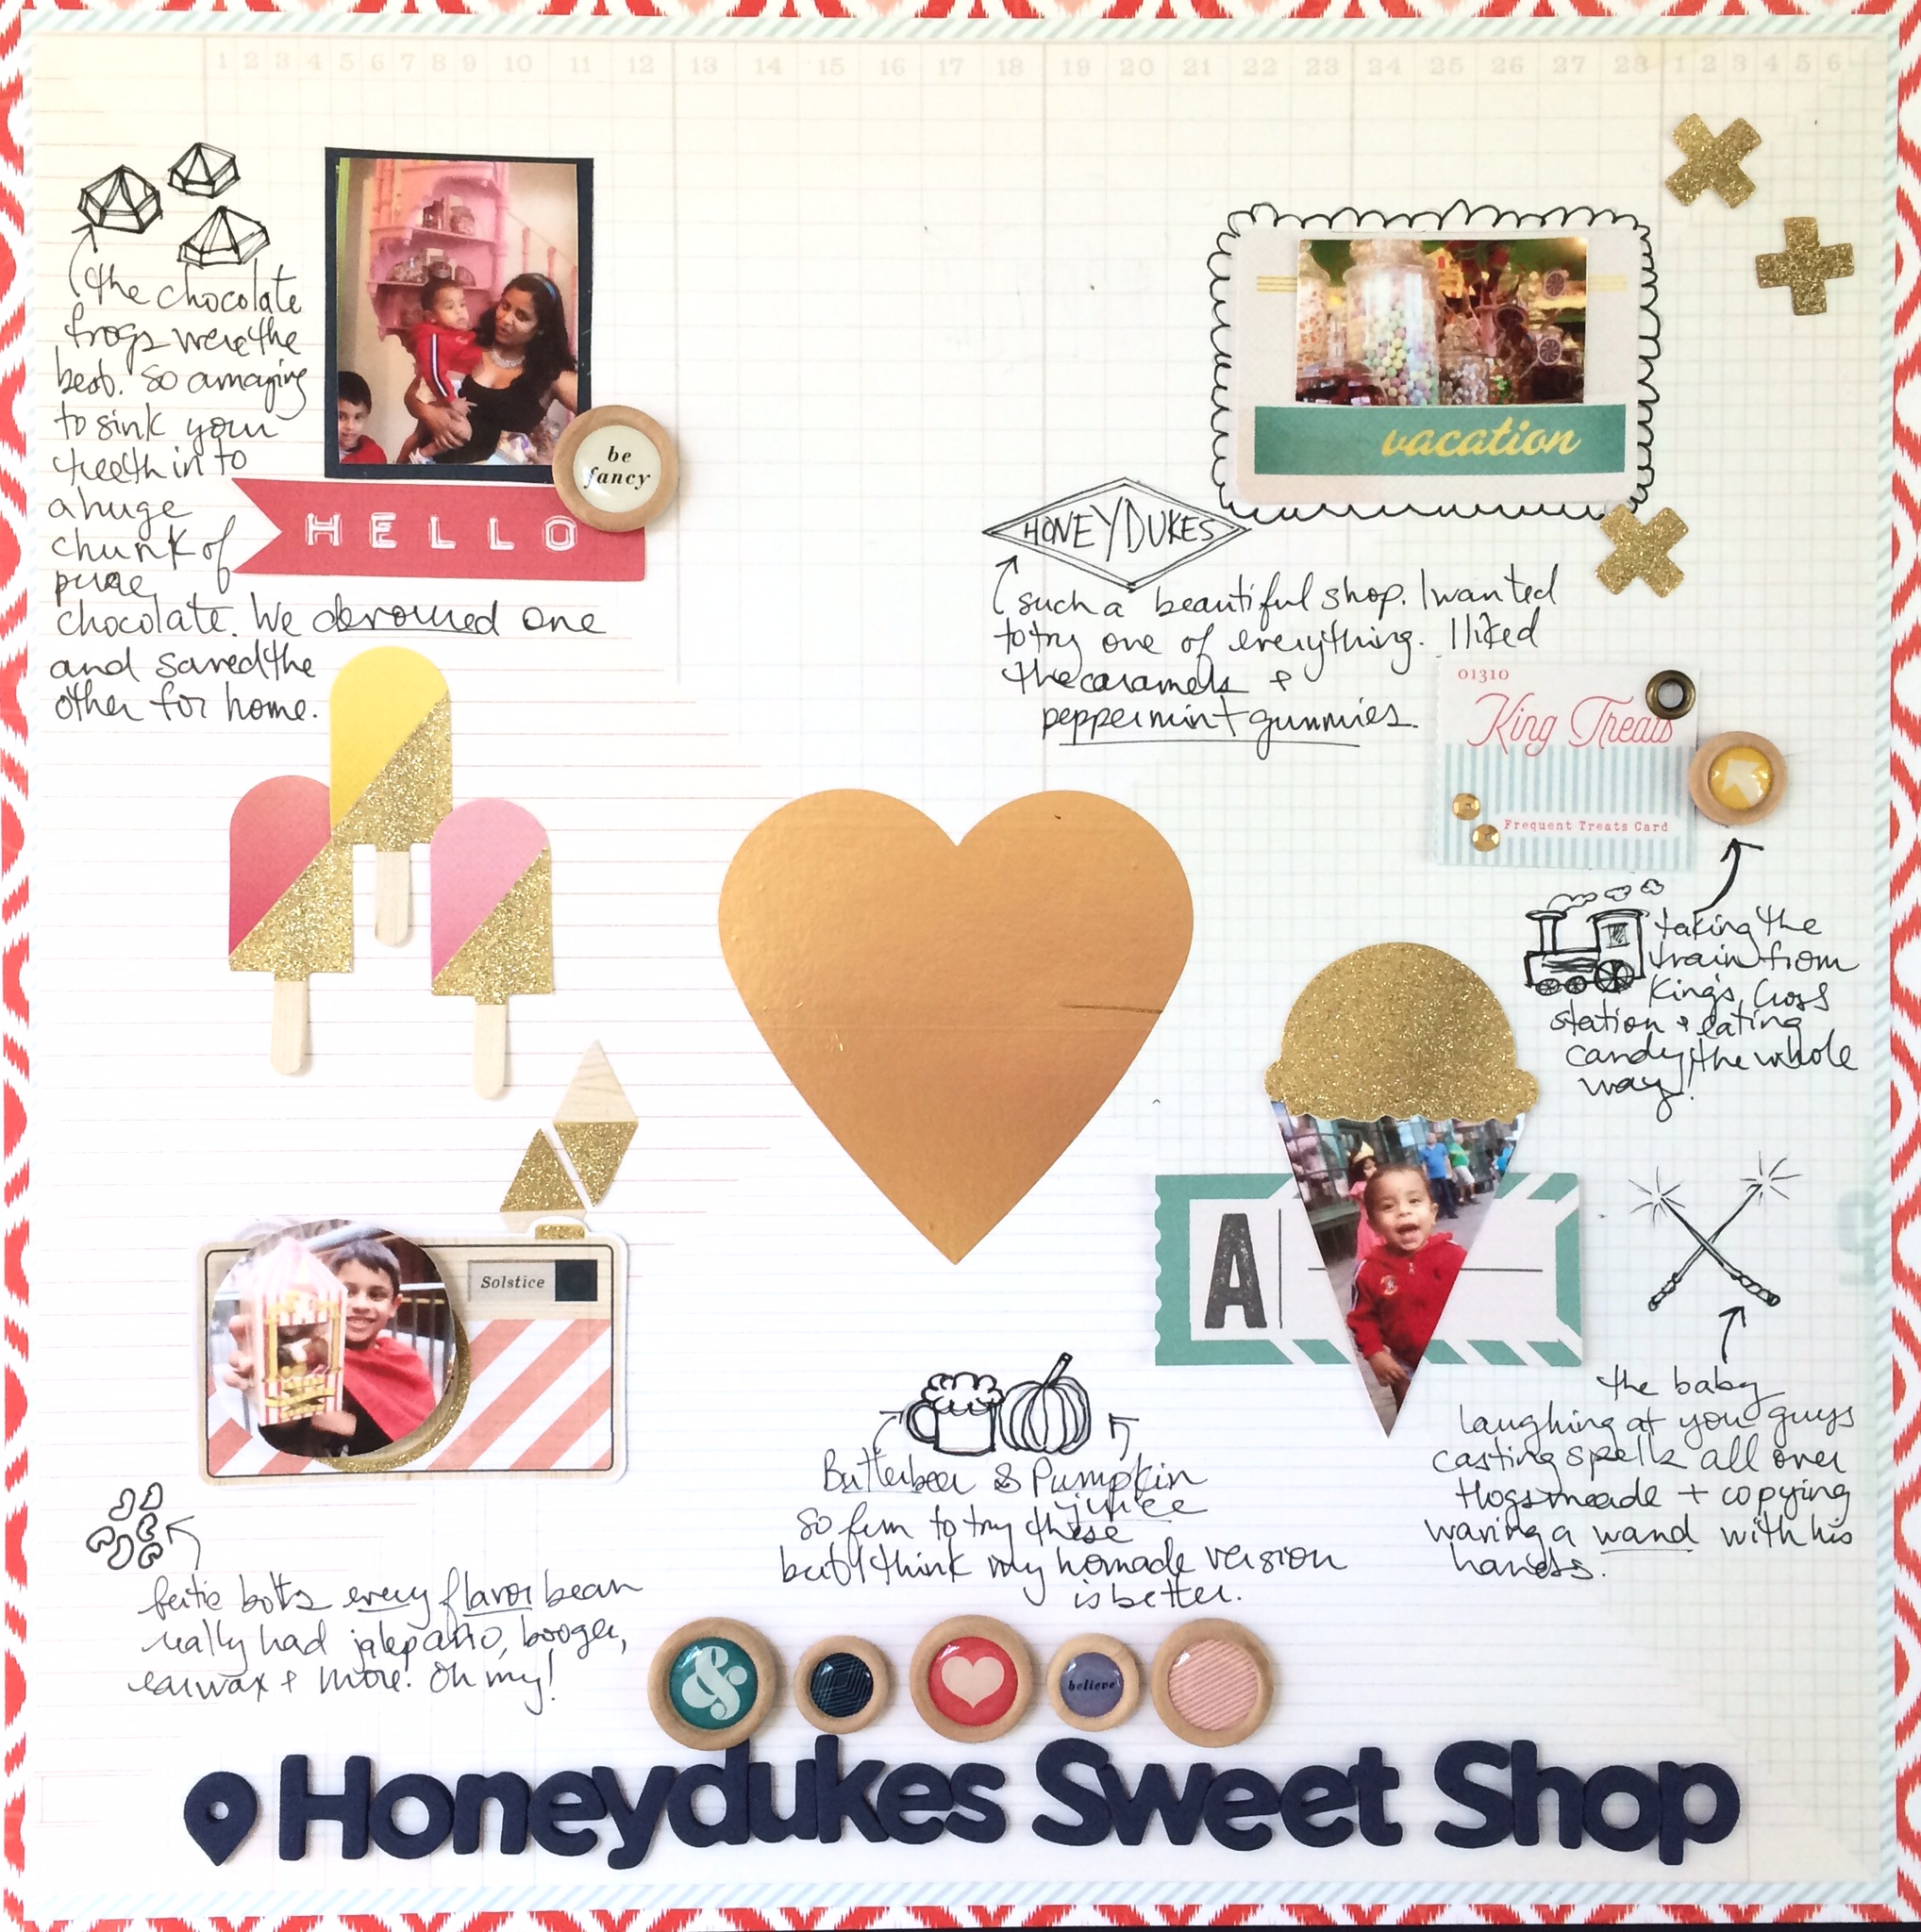 1 2 3 4 5 6 7 8 9 10 11 12 13 14 15 16 17 18 19 20 21 22 23 24 25 26 27 28 1 2 3 4 5 6
the chocolate
frogs were the
best. So amazing
to sink your
teeth in to
a huge
chunk of
pure
chocolate. We devoured one
and saved the
other for home.
be
fancy
HELLO
vacation
HONEYDUKES
such a beautiful shop. I wanted
to try one of everything. I liked
the caramels &
peppermint gummies.
01310
King Treats
Frequent Treats Card
taking the
train from
Kings Cross
station & eating
candy the whole
way!
Solstice
A
the baby
laughing at you guys
casting spells all over
Hogsmeade + copying
waving a wand with his
hands.
Butterbeer & Pumpkin
juice
so fun to try these
but I think my homade version
is better.
bertie botts every flavor bean
really had jalepaño, booger,
earwax + more! Oh my!
&
believe
Honeydukes Sweet Shop